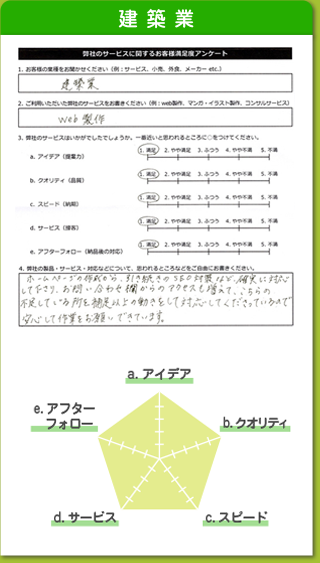 建築業
弊社のサービスに関するお客様満足度アンケート
1. お客様の業種をお聞かせください（例：サービス、小売、外食、メーカー etc.）
建築業
2. ご利用いただいた弊社のサービスをお書きください（例：web製作、マンガ・イラスト製作、コンサルサービス）
Web製作
3. 弊社のサービスはいかがでしたでしょうか。一番近いと思われるところに○をつけてください。
a. アイデア（提案力） 1. 満足 2. やや満足 3. ふつう 4. やや不満 5. 不満
b. クオリティ（品質） 1. 満足 2. やや満足 3. ふつう 4. やや不満 5. 不満
c. スピード（納期） 1. 満足 2. やや満足 3. ふつう 4. やや不満 5. 不満
d. サービス（接客） 1. 満足 2. やや満足 3. ふつう 4. やや不満 5. 不満
e. アフターフォロー（納品後の対応） 1. 満足 2. やや満足 3. ふつう 4. やや不満 5. 不満
4. 弊社の製品・サービス・対応などについて、思われるところなどをご自由にお書きください。
ホームページの作成から、引き続きのSEO対策など、確実に対応
して下さり、お問い合わせ欄からのアクセスも増えて、こちらの
不足している所を補足以上の働きをして対応してくださっているので
安心して作業をお願いできています。
a. アイデア
e. アフター
フォロー
b. クオリティ
d. サービス
c. スピード